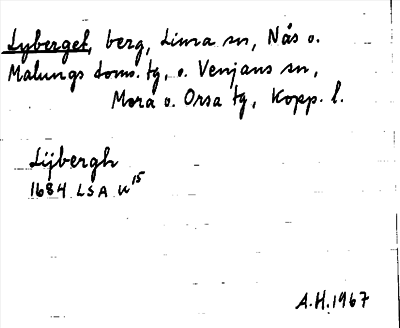 Lyberget, berg, Lima sn, Nås o.
Malungs doms. tg, o. Venjans sn,
Mora o. Orsa tg, Kopp. l.
Lijbergh
1684 LSA W15
A.H. 1967